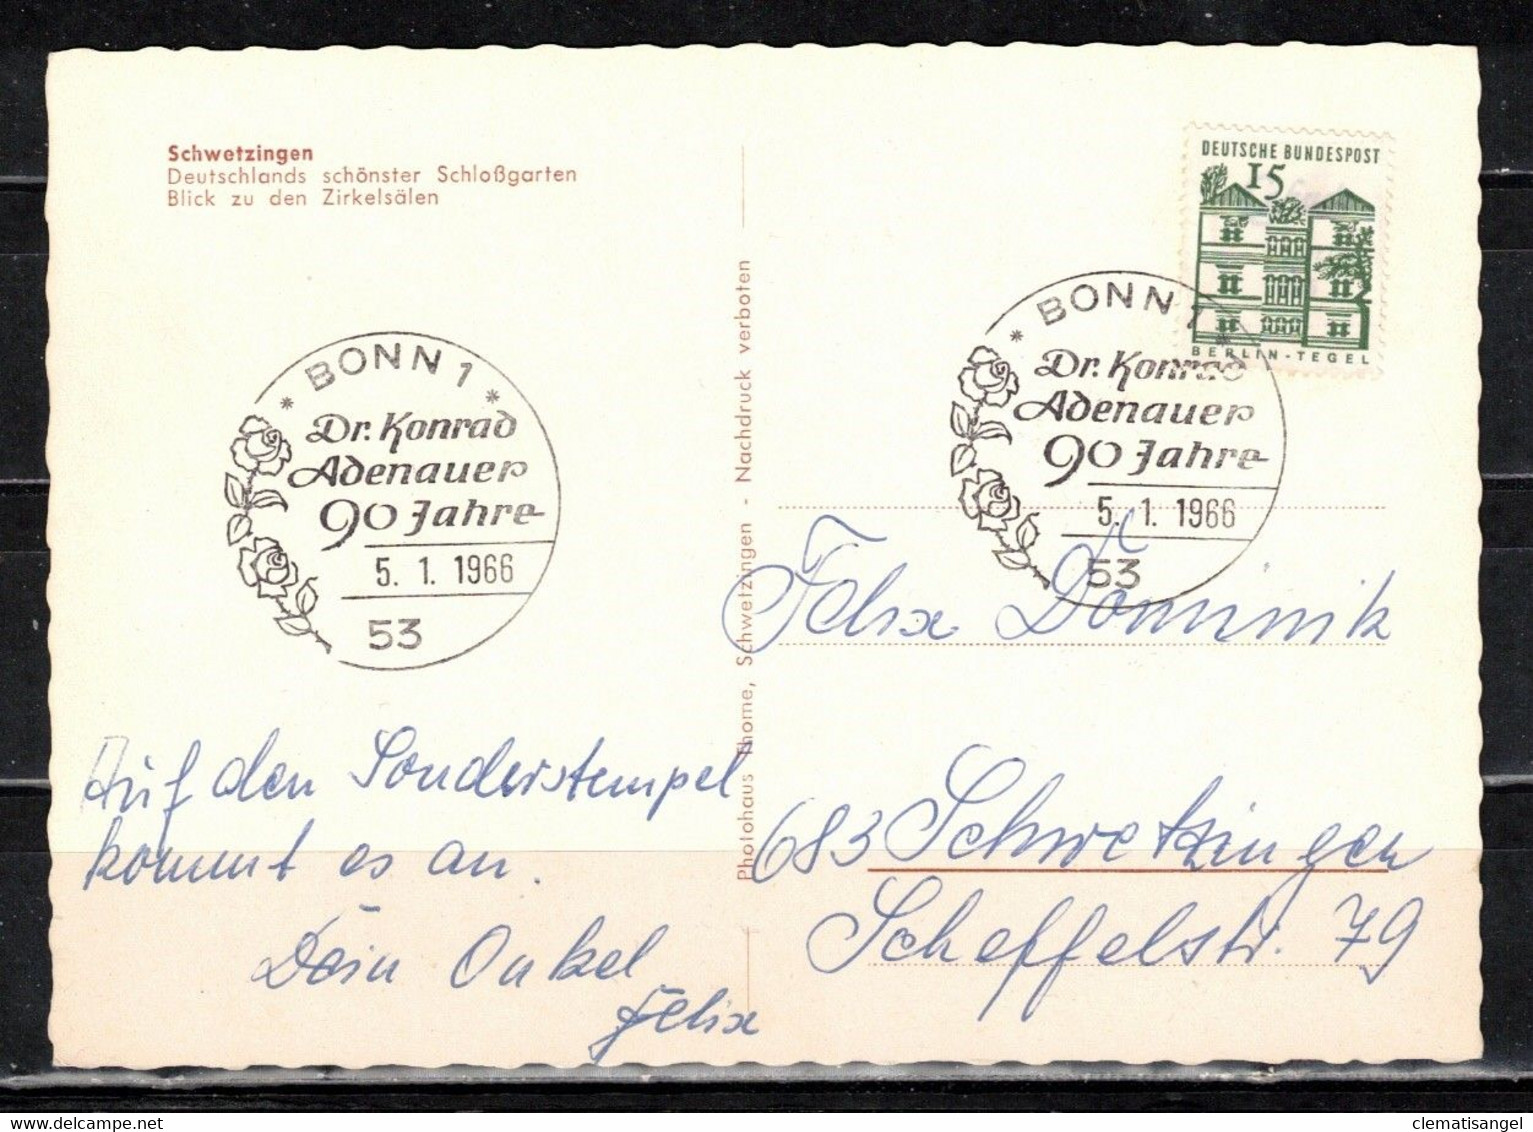 Schwetzingen
Deutschlands schönster Schloßgarten
Blick zu den Zirkelsälen
DEUTSCHE BUNDESPOST
15
BERLIN-TEGEL
* BONN 1 *
Dr. Konrad
Adenauer
90 Jahre
5. 1. 1966
53
* BONN 1 *
Dr. Konrad
Adenauer
90 Jahre
5. 1. 1966
53
Photohaus Thome, Schwetzingen - Nachdruck verboten
Auf den Sonderstempel
kommt es an.
Dein Onkel
Felix
Felix Dominik
683 Schwetzingen
Scheffelstr. 79
clematisangel